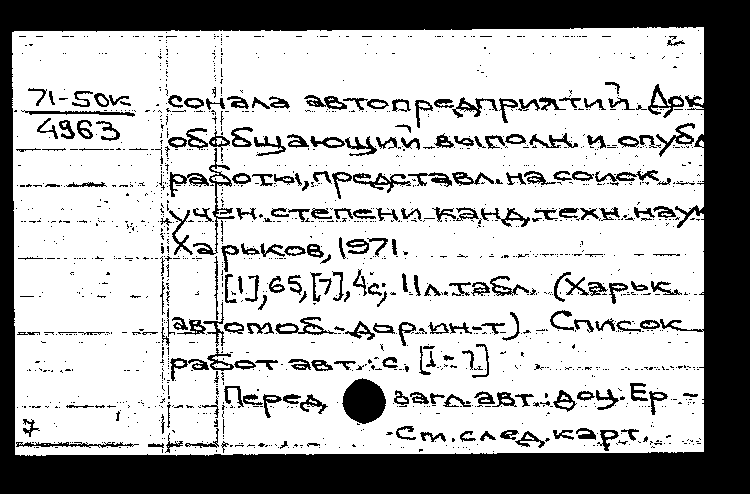 2
71-50к сонала автопредприятий. Док
4963 обобщающий выполн. и опубл
работы, представл. на соиск.
учен. степени канд. техн. наук
Харьков, 1971.
[1], 65, [7], 4с; 11л. табл. (Харьк.
автомоб-дор. ин-т). Список
работ авт.: с. [1-7]
Перед загл. авт.: доц. Ер -
-Ст. след. карт.
7